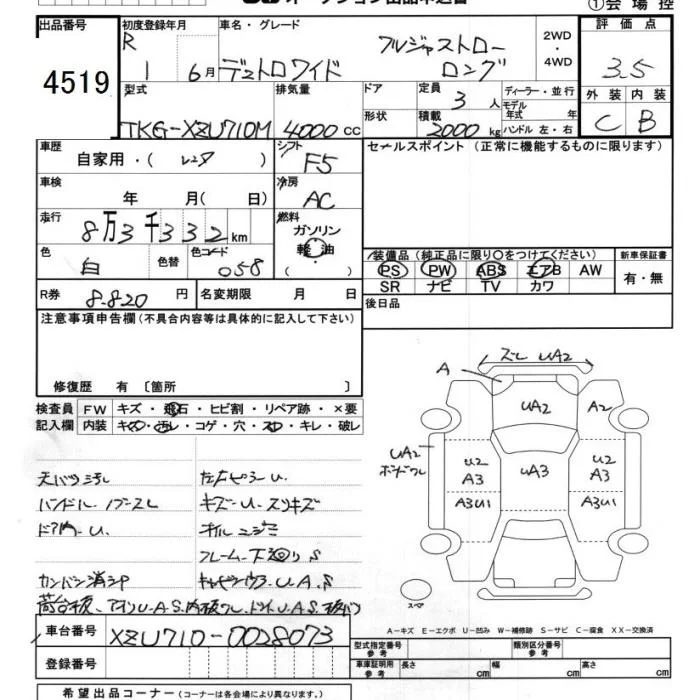 オークション出品申込書
①会場控
出品番号
4519
初度登録年月
R 1 6月
車名・グレード
フルジャストロー
デュトロワイド ロング
2WD
・
4WD
評価点
3.5
外装 内装
C B
型式
TKG-XZU710M
排気量
4000cc
ドア
形状
定員
3人
積載
2000kg
ディーラー・並行
モデル
年式 年
ハンドル 左・右
車歴
自家用・( )
シフト
F5
車検
年 月(日)
冷房
AC
歩行
8万3千332km
燃料
ガソリン
軽油
( )
色
白
色替
色コード
058
R券
8820円
名変期限 月 日
セールスポイント(正常に機能するものに限ります)
装備品(純正品に限り○をつけてください)
PS PW ABS エアB AW
SR ナビ TV カワ
新車保証書
有・無
後日品
注意事項申告欄(不具合内容等は具体的に記入して下さい)
修復歴 有〔箇所 〕
検査員 FW キズ・飛石・ヒビ割・リペア跡・×要
記入欄 内装 キズ・汚レ・コゲ・穴・スレ・キレ・破レ
天バリ汚レ
左右ピラーU.
ハンドル.ノブスレ
キズ-U.スリキズ
ドア内-U.
オイルニジミ
フレーム下廻りS
カンバン消シ印
キャビンウラ-U.A.S
荷台板、アオリU.A.S.
A
ズレ UA2
UA2
A2
UA2
ボードワレ
U2
A3
UA3
U2
A3
A3U1
A3U1
スペア
A-キズ E-エクボ U-凹み W-補修跡 S-サビ C-腐食 XX-交換済
車台番号
XZU710-0028073
型式指定番号
参考
類別区分番号
参考
登録番号
車庫証明用
参考
長さ cm 幅 cm 高さ cm
希望出品コーナー(コーナーは各会場により異なります。)